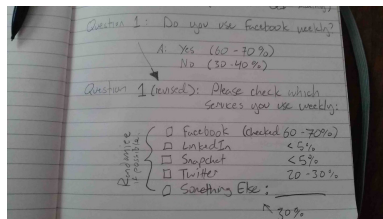 Question 1: Do you use Facebook weekly?
A: Yes (60-70%)
No (30-40%)
Question 1 (revised): Please check which
services you use weekly:
Randomize if possible
□ Facebook (checked 60-70%)
□ LinkedIn <5%
□ Snapchat <5%
□ Twitter 20-30%
□ Something Else:
20%